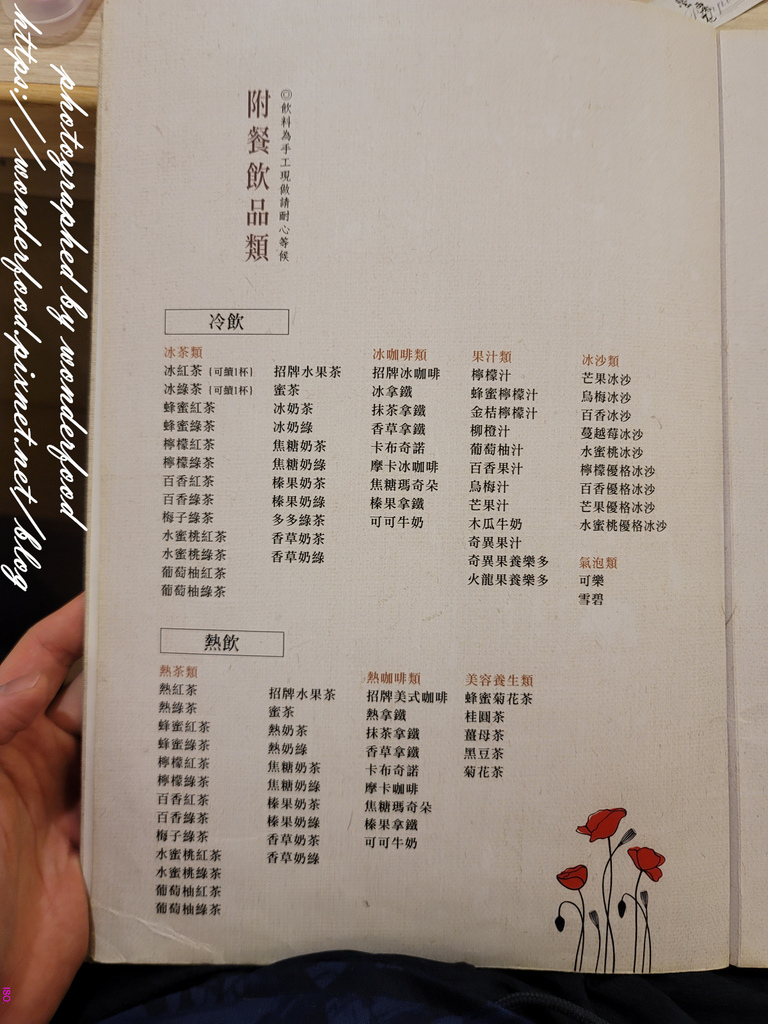 附餐飲品類
◎飲料為手工現做請耐心等候
冷飲
冰茶類
冰紅茶 (可續1杯)
冰綠茶 (可續1杯)
蜂蜜紅茶
蜂蜜綠茶
檸檬紅茶
檸檬綠茶
百香紅茶
百香綠茶
梅子綠茶
水蜜桃紅茶
水蜜桃綠茶
葡萄柚紅茶
葡萄柚綠茶
招牌水果茶
蜜茶
冰奶茶
冰奶綠
焦糖奶茶
焦糖奶綠
榛果奶茶
榛果奶綠
多多綠茶
香草奶茶
香草奶綠
冰咖啡類
招牌冰咖啡
冰拿鐵
抹茶拿鐵
香草拿鐵
卡布奇諾
摩卡冰咖啡
焦糖瑪奇朵
榛果拿鐵
可可牛奶
果汁類
檸檬汁
蜂蜜檸檬汁
金桔檸檬汁
柳橙汁
葡萄柚汁
百香果汁
烏梅汁
芒果汁
木瓜牛奶
奇異果汁
奇異果養樂多
火龍果養樂多
冰沙類
芒果冰沙
烏梅冰沙
百香冰沙
蔓越莓冰沙
水蜜桃冰沙
檸檬優格冰沙
百香優格冰沙
芒果優格冰沙
水蜜桃優格冰沙
氣泡類
可樂
雪碧
熱飲
熱茶類
熱紅茶
熱綠茶
蜂蜜紅茶
蜂蜜綠茶
檸檬紅茶
檸檬綠茶
百香紅茶
百香綠茶
梅子綠茶
水蜜桃紅茶
水蜜桃綠茶
葡萄柚紅茶
葡萄柚綠茶
招牌水果茶
蜜茶
熱奶茶
熱奶綠
焦糖奶茶
焦糖奶綠
榛果奶茶
榛果奶綠
香草奶茶
香草奶綠
熱咖啡類
招牌美式咖啡
熱拿鐵
抹茶拿鐵
香草拿鐵
卡布奇諾
摩卡咖啡
焦糖瑪奇朵
榛果拿鐵
可可牛奶
美容養生類
蜂蜜菊花茶
桂圓茶
薑母茶
黑豆茶
菊花茶
photographed by wonderfood
https://wonderfood.pixnet.net/blog
ISO